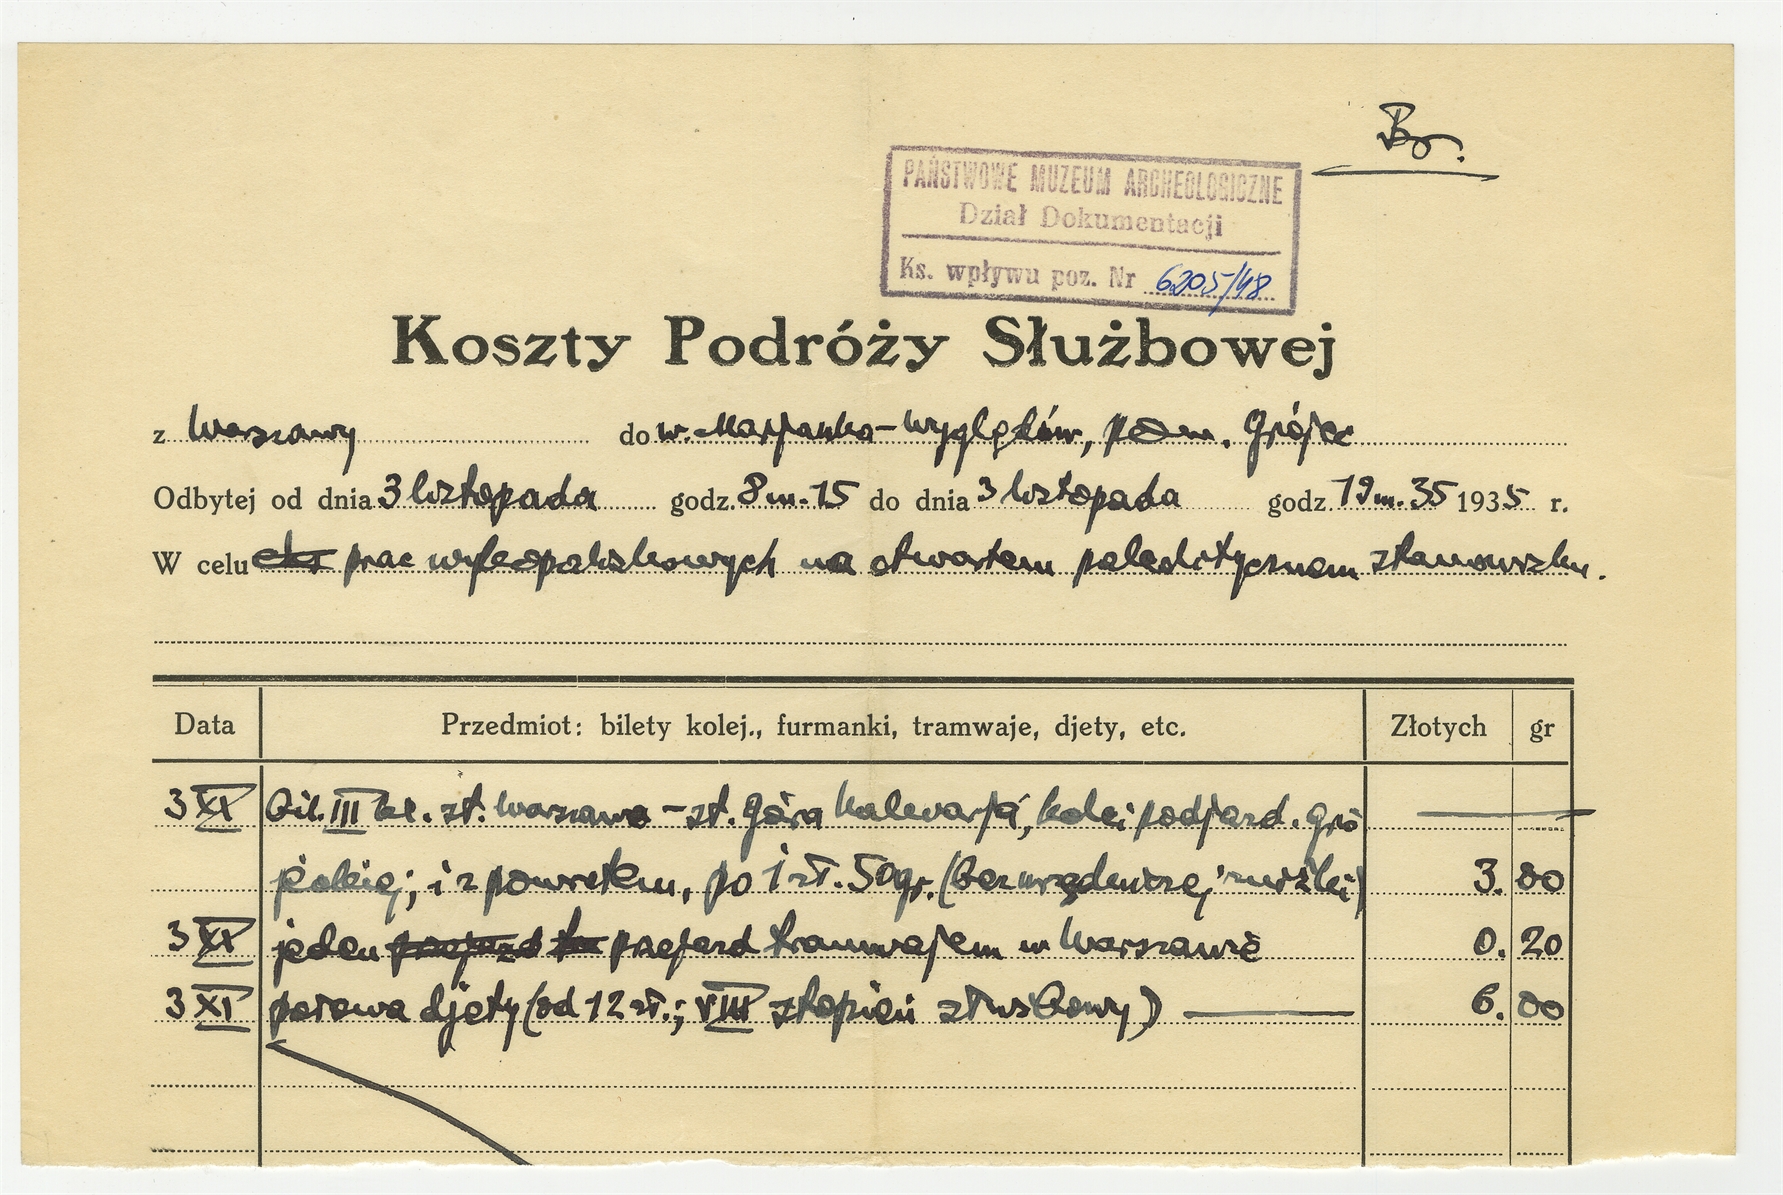 PAŃSTWOWE MUZEUM ARCHEOLOGICZNE
Dział Dokumentacji
Ks. wpływu poz. Nr 6205/48
Koszty Podróży Służbowej
z Warszawy do w. Marjanka-Wyględów, pow. Grójec
Odbytej od dnia 3 listopada godz. 8 m. 15 do dnia 3 listopada godz. 19 m. 35 1935 r.
W celu prac wykopaliskowych na otwartem paleolitycznem stanowisku.
Data Przedmiot: bilety kolej., furmanki, tramwaje, djety, etc. Złotych gr
3 XI Bil. III kl. st. Warszawa - st. Góra Kalwarja, kolei podjazd. Gró
jeckiej; i z powrotem, po 1 zł. 50 gr. (bez urzędniczej zniżki) 3. 00
3 XI jeden przejazd tramwajem w Warszawie 0. 20
3 XI połowa djety (od 12 zł.; VIII stopień służbowy) 6. 00